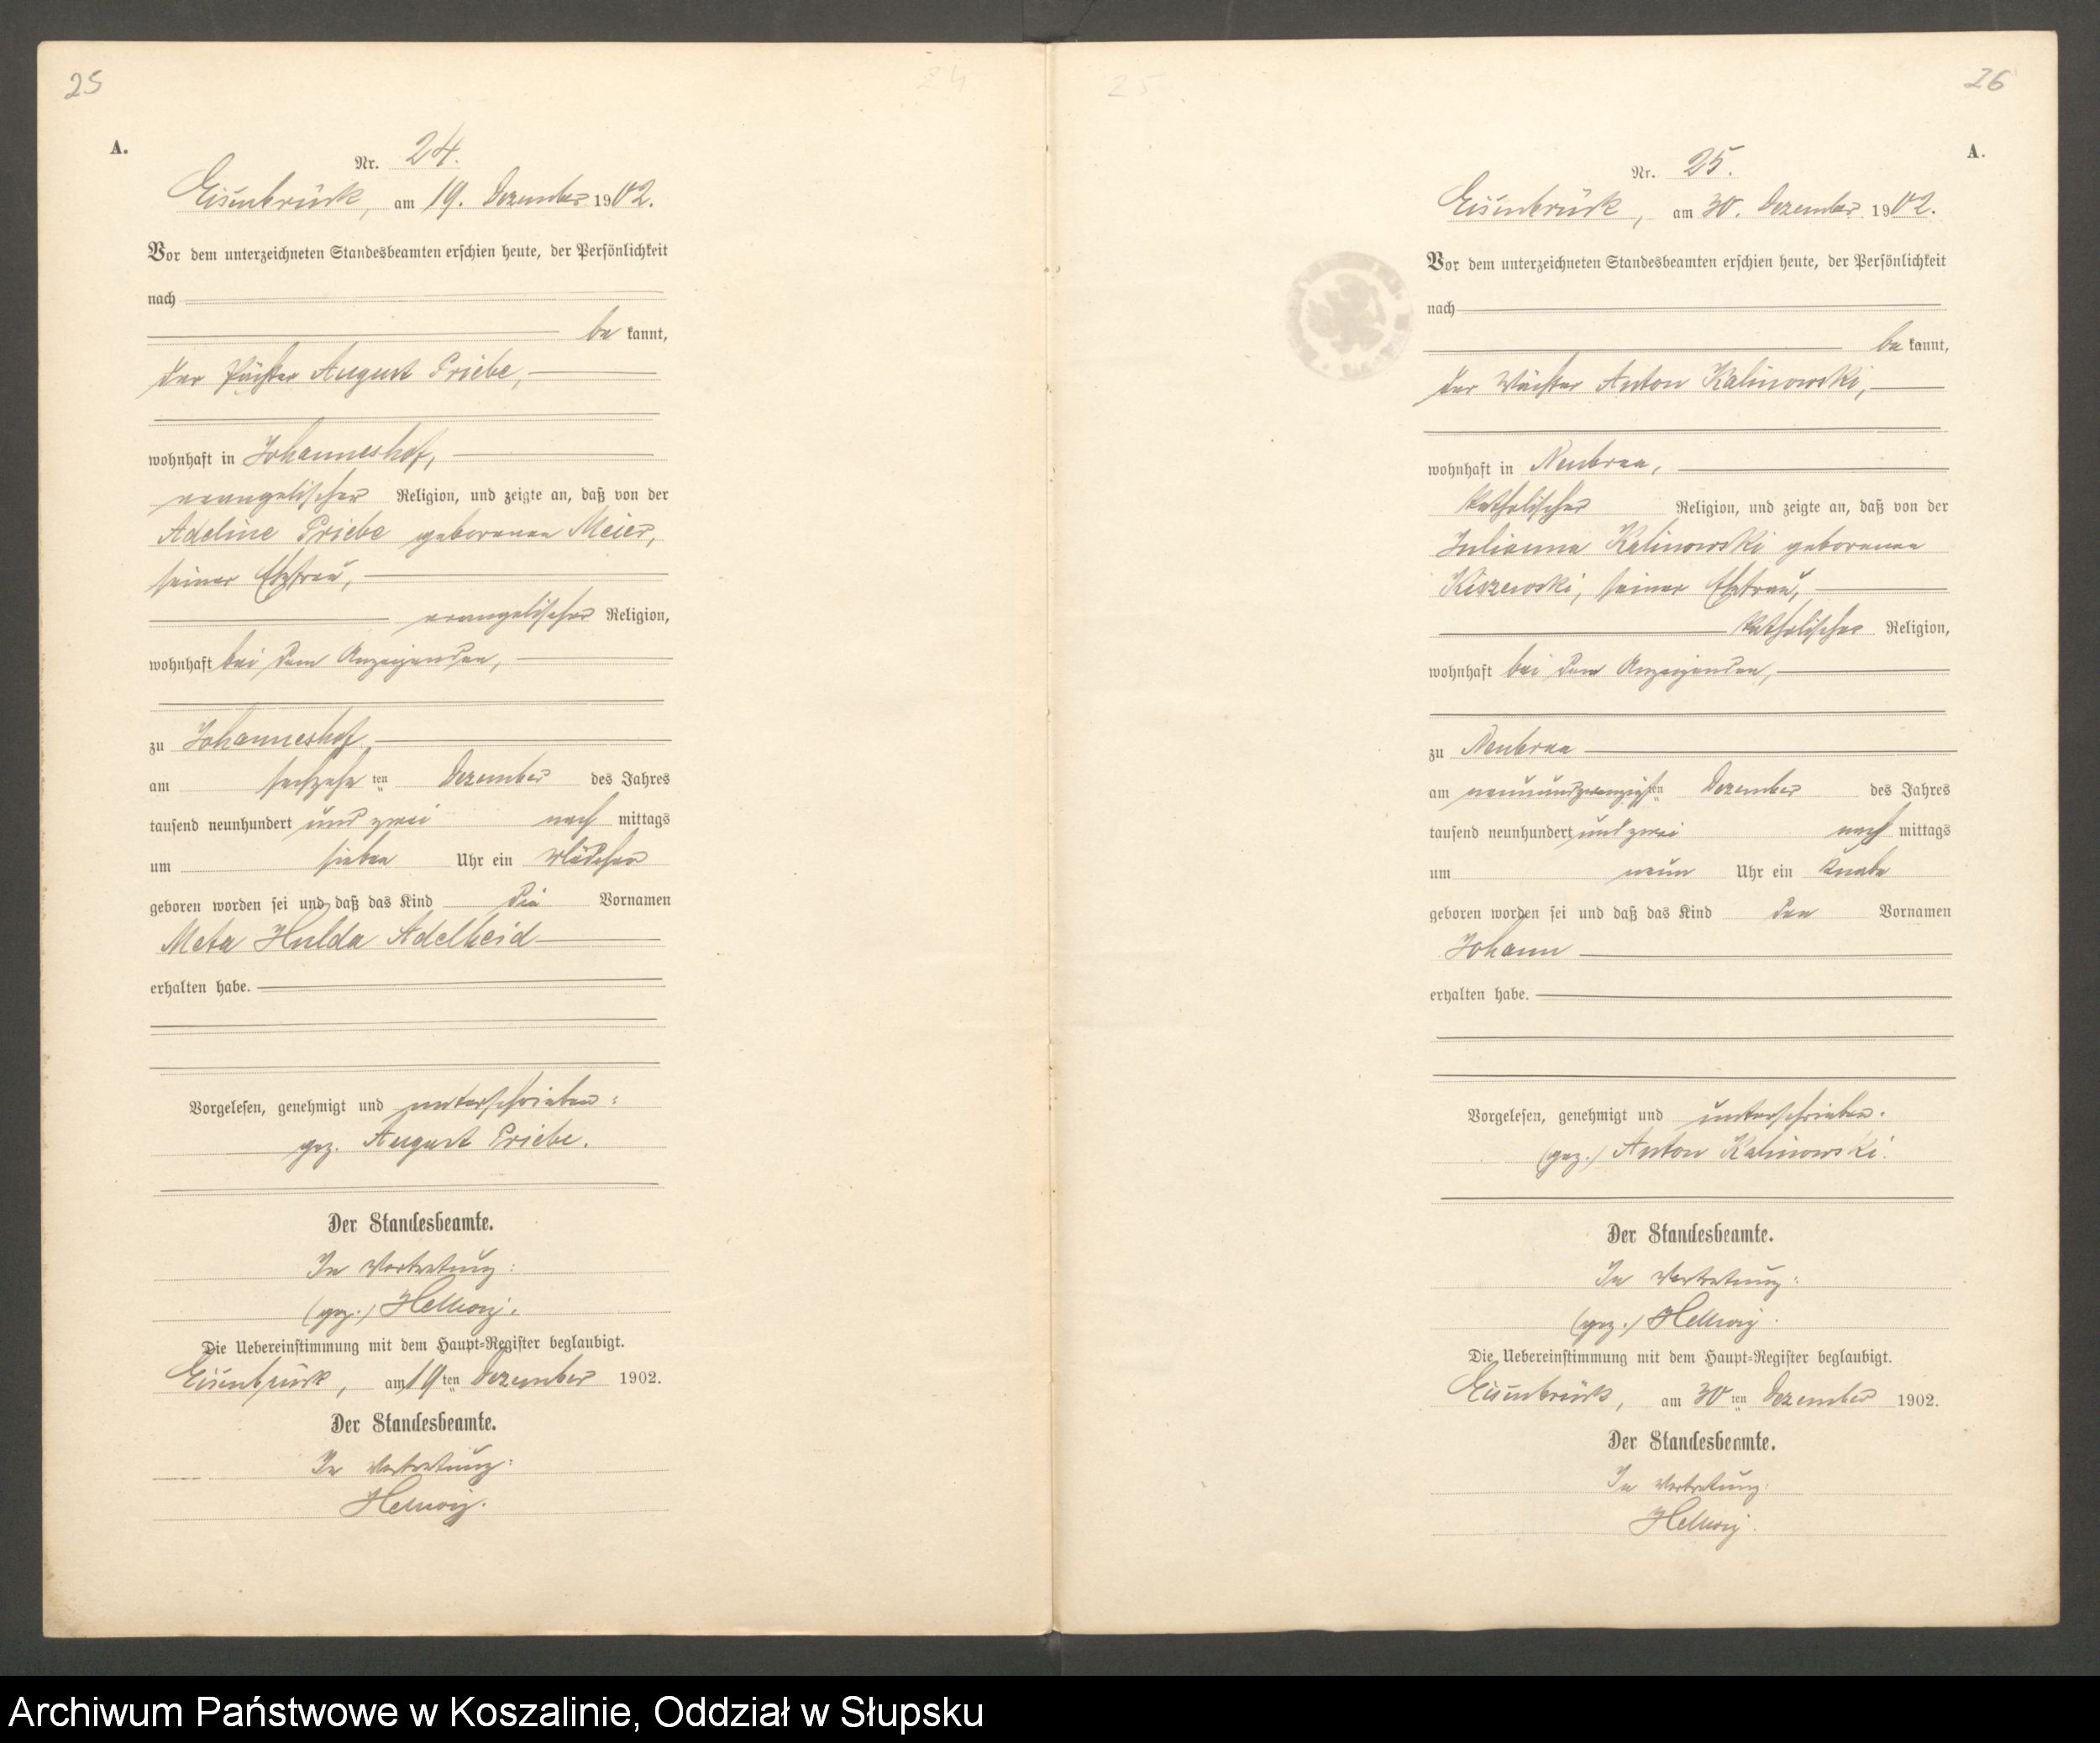 25
A.
Nr. 24.
Eisenbrück, am 19. Dezember 1902.
Vor dem unterzeichneten Standesbeamten erschien heute, der Persönlichkeit
nach
be kannt,
der Pächter August Priebe,
wohnhaft in Johanneshof,
evangelischer Religion, und zeigte an, daß von der
Adeline Priebe geborenen Meier,
seiner Ehefrau,
evangelischer Religion,
wohnhaft bei dem Anzeigenden,
zu Johanneshof
am sechzehn ten Dezember des Jahres
tausend neunhundert und zwei nach mittags
um sieben Uhr ein Mädchen
geboren worden sei und daß das Kind die Vornamen
Meta Hulda Adelheid
erhalten habe.
Vorgelesen, genehmigt und unterschrieben:
gez. August Priebe.
Der Standesbeamte.
In Vertretung:
(gez.) Hellwig.
Die Uebereinstimmung mit dem Haupt-Register beglaubigt.
Eisenbrück, am 19ten Dezember 1902.
Der Standesbeamte.
In Vertretung:
Hellwig.
26
A.
Nr. 25.
Eisenbrück, am 30. Dezember 1902.
Vor dem unterzeichneten Standesbeamten erschien heute, der Persönlichkeit
nach
be kannt,
der Wächter Anton Kalinowski,
wohnhaft in Neubraa,
katholischer Religion, und zeigte an, daß von der
Julianna Kalinowski geborenen
Kiszewski, seiner Ehefrau,
katholischer Religion,
wohnhaft bei dem Anzeigenden,
zu Neubraa
am neunundzwanzigsten Dezember des Jahres
tausend neunhundert und zwei nach mittags
um neun Uhr ein Knabe
geboren worden sei und daß das Kind den Vornamen
Johann
erhalten habe.
Vorgelesen, genehmigt und unterschrieben.
(gez.) Anton Kalinowski.
Der Standesbeamte.
In Vertretung:
(gez.) Hellwig.
Die Uebereinstimmung mit dem Haupt-Register beglaubigt.
Eisenbrück, am 30ten Dezember 1902.
Der Standesbeamte.
In Vertretung:
Hellwig.
Archiwum Państwowe w Koszalinie, Oddział w Słupsku